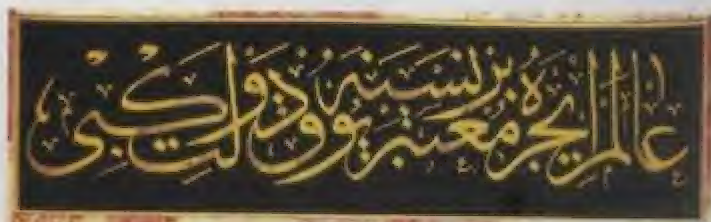 عالم ایچره معتبر بر نسنه یوق دولت کبی